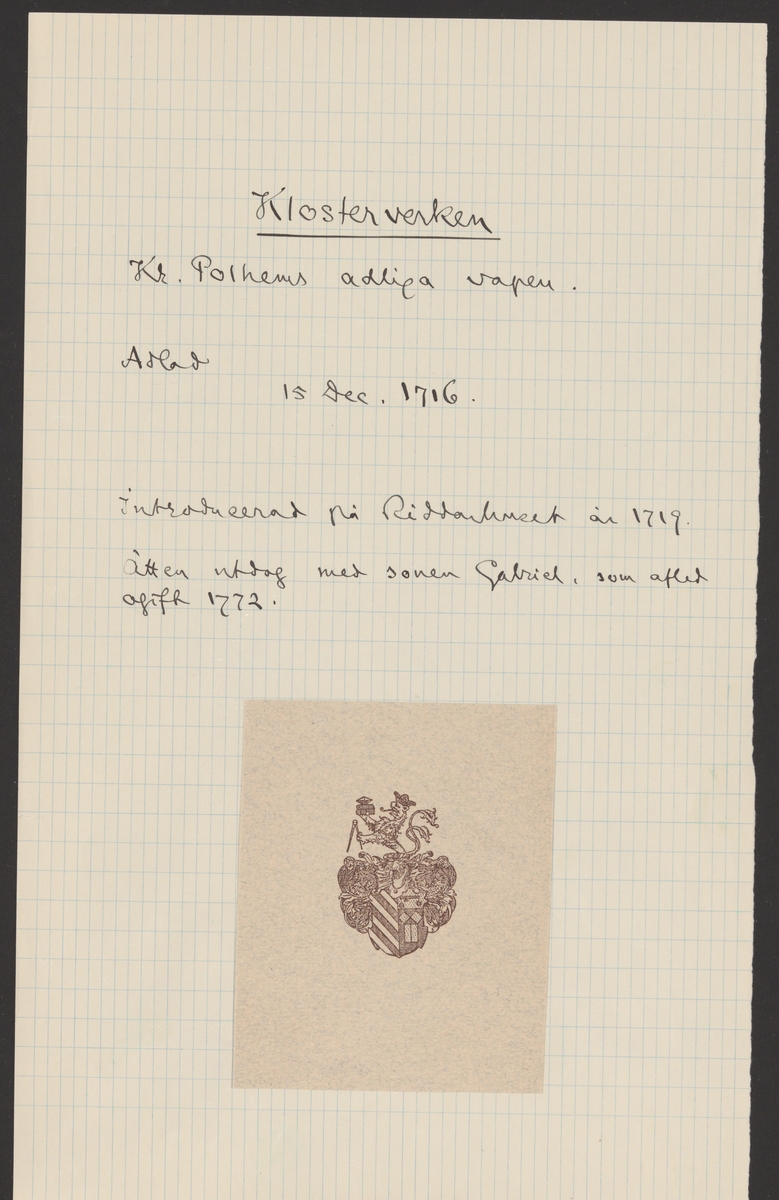 Klosterverken
Kr. Polhems adliga vapen.
Adlad
15 Dec. 1716.
Introducerad på Riddarhuset år 1719.
Ätten utdog med sonen Gabriel, som afled
ogift 1772.